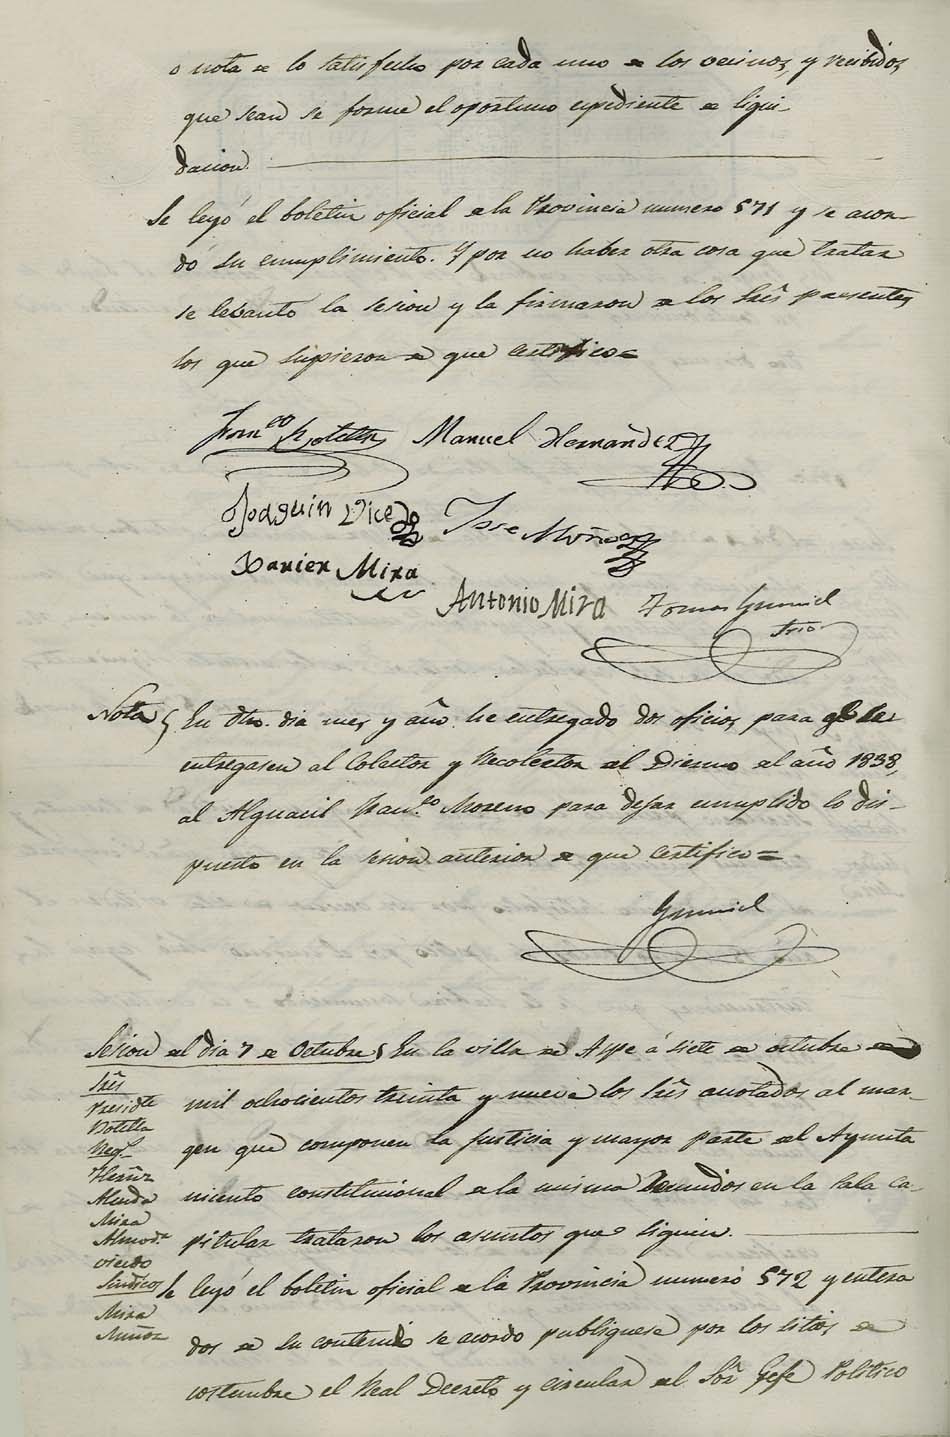 o nota de lo satisfecho por cada uno de los vecinos, y recibidos
que sean se forme el oportuno espediente de liqui-
dacion.
Se leyó el boletin oficial de la Provincia numero 571 y se acor-
dó su cumplimiento. Y por no haber otra cosa que tratar
se levantó la sesion y la firmaron de los Sres presentes
los que supieron de que certifico=
Franco Botella Manuel Hernandez
Joaquin Vicedo Jose Muñoz
Xavier Mira
Antonio Mira Tomas
Srio
Nota En dho. dia mes y año he entregado dos oficios para
entregasen al Colector y Recolector del Diezmo del año 1838,
al Alguacil Moreno para dejar cumplido lo dis-
puesto en la sesion anterior de que certifico=
Sesion del dia 7 de Octubre En la villa de Aspe á siete de octubre de
Sres
Preside
mil ochocientos treinta y nueve los Sres anotados al mar-
Botella
Regs
gen que componen la Justicia y mayor parte del Ayunta
Hernz
Almda
miento constitucional de la misma reunidos en la sala ca-
Mira
Almoda
pitular trataron los asuntos que siguen.
Vicedo
Sindicos
Se leyó el boletin oficial de la Provincia numero 572 y entera
Mira
Muñoz
dos de su contenido se acordo publiquese por los sitios de
costumbre el Real Decreto y circular del Sor Gefe Politico